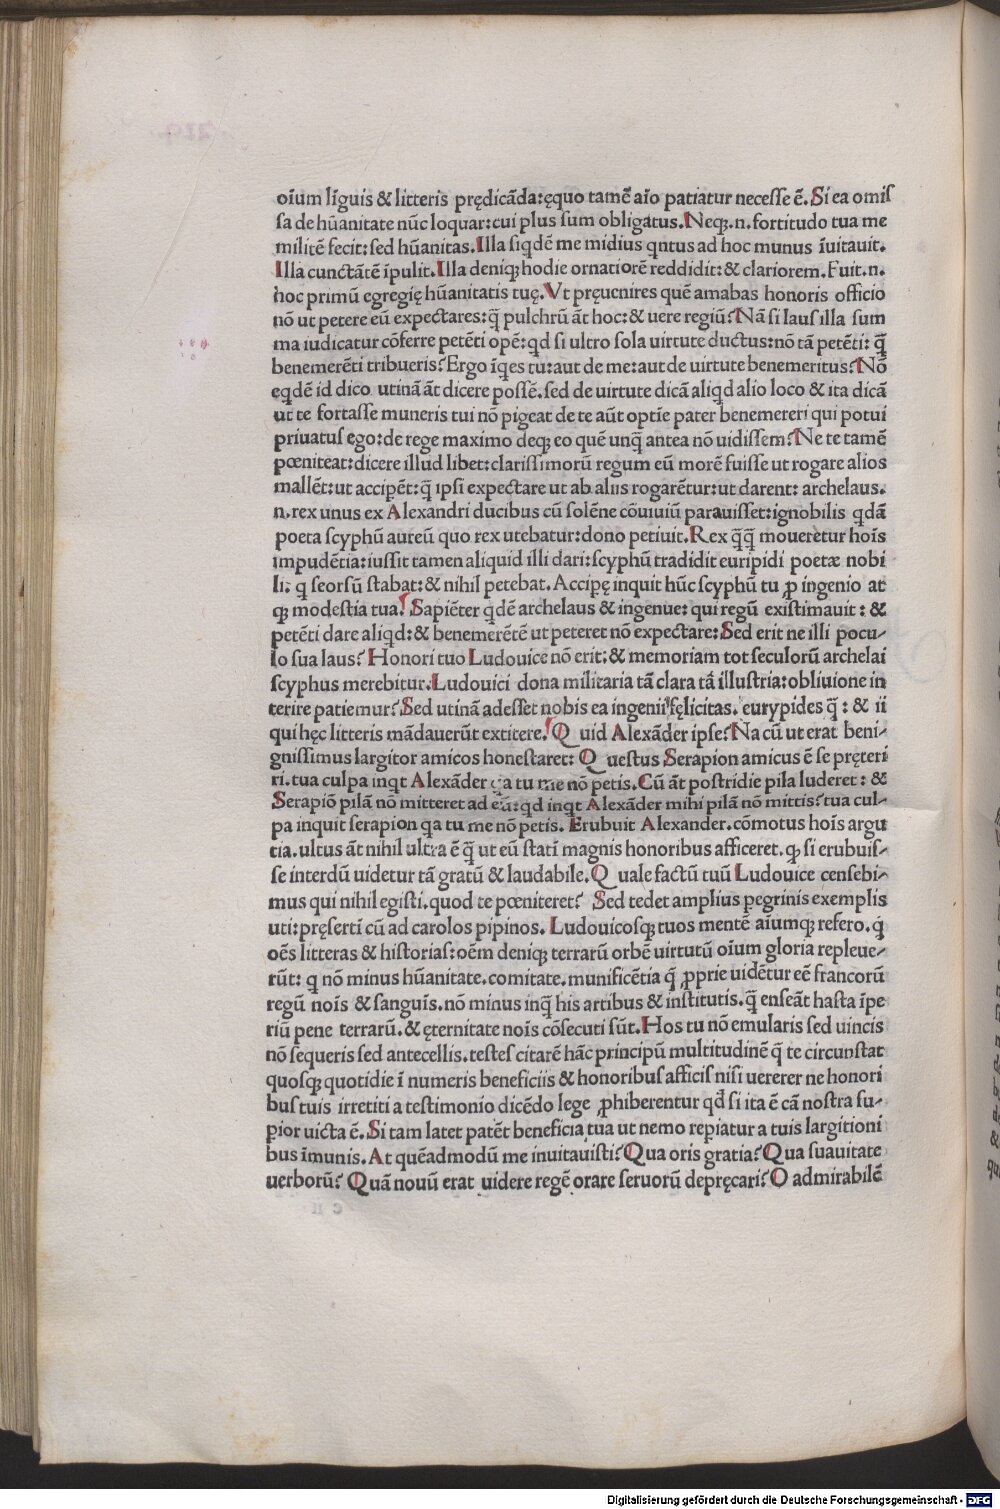 oīum līguis & litteris prędicāda:ęquo tamē aīo patiatur necesse ē. Si ea omiſ
sa de hūanitate nūc loquar: cui plus sum obligatus. Neq;.n. fortitudo tua me
militē fecit: sed hūanitas. Illa siqdē me midius qntus ad hoc munus īuitauit.
Illa cunctātē īpulit. Illa deniq; hodie ornatiorē reddidit: & clariorem. Fuit.n.
hoc primū egregię hūanitatis tuę. Vt pręuenires quē amabas honoris officio
nō ut petere eū expectares: q̄ pulchrū āt hoc: & uere regiū? Nā si laus illa sum
ma iudicatur cōferre petēti opē: qd si ultro sola uirtute ductus: nō tā petēti: q̄
benemerēti tribueris? Ergo īqes tu: aut de me: aut de uirtute benemeritus? Nō
eqdē id dico utinā āt dicere possē. sed de uirtute dicā aliqd alio loco & ita dicā
ut te fortasse muneris tui nō pigeat de te aūt optīe pater benemereri qui potui
priuatus ego: de rege maximo deq; eo quē unq̄ antea nō uidissem? Ne te tamē
pœniteat: dicere illud libet: clarissimorū regum eū morē fuisse ut rogare alios
mallēt: ut accipēt: q̄ ipsi expectare ut ab aliis rogarētur: ut darent: archelaus.
n. rex unus ex Alexandri ducibus cū solēne cōuiuiū parauisset: ignobilis qdā
poeta scyphū aureū quo rex utebatur: dono petiuit. Rex q̄q̄ moueretur hoīs
impudētia: iussit tamen aliquid illi dari: scyphū tradidit euripidi poetæ nobi
li: q seorsū stabat: & nihil petebat. Accipę inquit hūc scyphū tu ꝓ ingenio at
q; modestia tua! Sapiēter qdē archelaus & ingenue: qui regū existimauit: &
petēti dare aliqd: & benemerētē ut peteret nō expectare: Sed erit ne illi pocu-
lo sua laus? Honori tuo Ludouice nō erit: & memoriam tot seculorū archelai
scyphus merebitur. Ludouici dona militaria tā clara tā illustria: obliuione in
terire patiemur? Sed utinā adesset nobis ea ingenii fęlicitas. eurypides q̄: & ii
qui hęc litteris mādauerūt extitere! Q uid Alexāder ipse? Na cū ut erat beni-
gnissimus largitor amicos honestaret: Q uestus Serapion amicus ē se pręteri
ri. tua culpa inqt Alexāder qa tu me nō petis. Cū āt postridie pila luderet: &
Serapiō pilā nō mitteret ad eū: qd inqt Alexāder mihi pilā nō mittis? tua cul-
pa inquit serapion qa tu me nō petis. Erubuit Alexander. cōmotus hoīs argu
tia. ultus āt nihil ultra ē q̄ ut eū statī magnis honoribus afficeret. q; si erubuis-
se interdū uidetur tā gratū & laudabile. Q uale factū tuū Ludouice censebi-
mus qui nihil egisti. quod te pœniteret? Sed tedet amplius pegrinis exemplis
uti: pręserti cū ad carolos pipinos. Ludouicosq; tuos mentē aiumq; refero. q
oēs litteras & historias: oēm deniq; terrarū orbē uirtutū oīum gloria repleue-
rūt: q nō minus hūanitate. comitate. munificētia q̄ ꝓprie uidētur eē francorū
regū noīs & sanguīs. nō minus inq̄ his artibus & institutis. q̄ enseāt hasta īpe
riū pene terrarū. & ęternitate noīs cōsecuti sūt. Hos tu nō emularis sed uincis
nō sequeris sed antecellis. testes citarē hāc principū multitudinē q̄ te circunstat
quosq; quotidie ī numeris beneficiis & honoribus afficis nisi uererer ne honori
bus tuis irretiti a testimonio dicēdo lege ꝓhiberentur qd si ita ē cā nostra su-
pior uicta ē. Si tam latet patēt beneficia tua ut nemo repiatur a tuis largitioni
bus īmunis. At quēadmodū me inuitauisti? Qua oris gratia? Qua suauitate
uerborū? Quā nouū erat uidere regē orare seruorū depręcari? O admirabilē
Digitalisierung gefördert durch die Deutsche Forschungsgemeinschaft - DFG